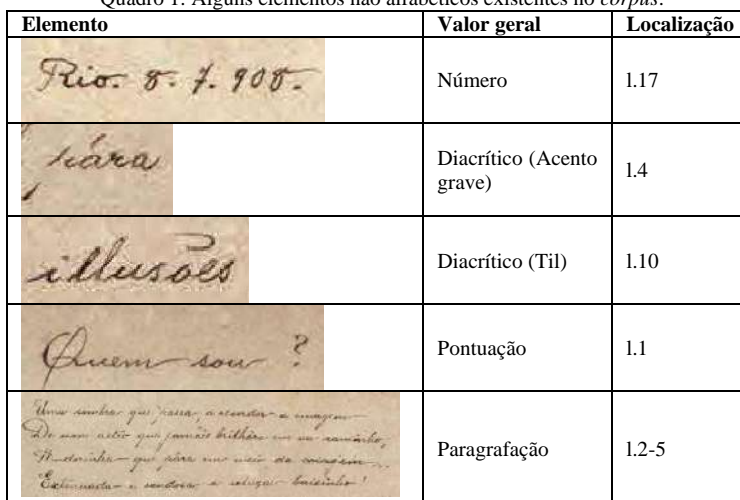 Quadro 1: Alguns elementos não alfabéticos existentes no corpus.
Elemento Valor geral Localização
Rio. 8. 7. 908. Número l.17
pára Diacrítico (Acento grave) l.4
illusões Diacrítico (Til) l.10
Quem sou ? Pontuação l.1
Uma sombra que passa, a
De um astro que jamais em un caminho,
que pára em meio da
Extenuada e a soluçar baixinho !
Paragrafação l.2-5